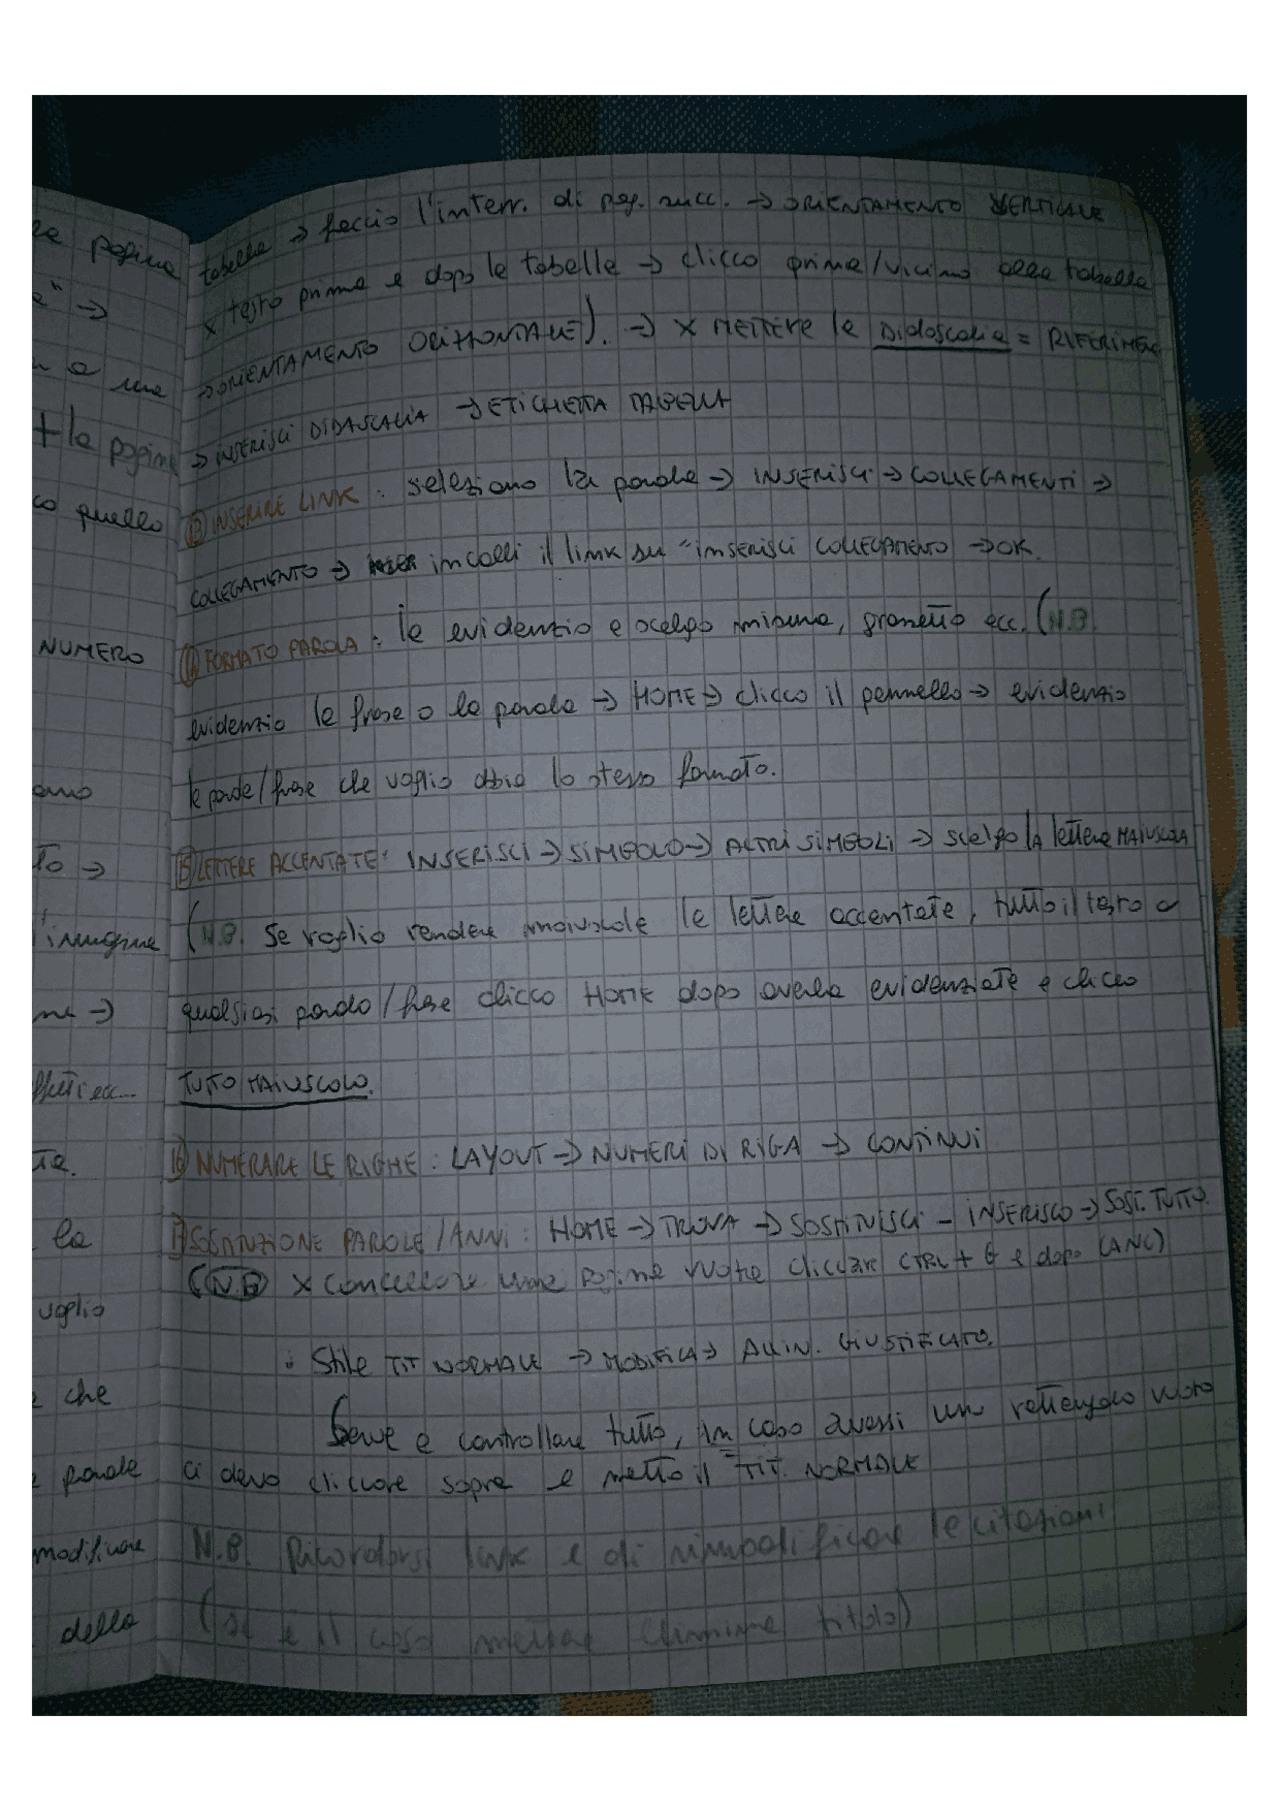 tabella → faccio l'interr. di pag. succ. → ORIENTAMENTO VERTICALE
x testo prima e dopo le tabelle → clicco prima/vicino alla tabella
→ ORIENTAMENTO ORIZZONTALE). → x METTERE la Didascalia = RIFERIMEN
→ INSERISCI DIDASCALIA → ETICHETTA TABELLA
13) INSERIRE LINK: seleziono la parola → INSERISCI → COLLEGAMENTI →
COLLEGAMENTO → incolli il link su "INSERISCI COLLEGAMENTO → OK.
14) FORMATO PAROLA: la evidenzio e scelgo misura, grassetto ecc. (N.B.
evidenzio la frase o la parola → HOME → clicco il pennello → evidenzio
la parola/frase che voglio abbia lo stesso formato.
15) LETTERE ACCENTATE: INSERISCI → SIMBOLO → ALTRI SIMBOLI → scelgo LA lettera MAIUSCOLA
(N.B. Se voglio rendere maiuscole le lettere accentate, tutto il testo o
qualsiasi parola/frase clicco HOME dopo averla evidenziata e clicco
TUTTO MAIUSCOLO.
16) NUMERARE LE RIGHE: LAYOUT → NUMERI DI RIGA → CONTINUI
17) SOSTITUZIONE PAROLE/ANNI: HOME → TROVA → SOSTITUISCI - INSERISCO → SOST. TUTTO.
(N.B x cancellare una pagina vuota cliccare CTRL + e dopo CANC)
: Stile TIT NORMALE → MODIFICA → ALLIN. GIUSTIFICATO.
Serve a controllare tutto, in caso avessi un rettangolo vuoto
ci devo cliccare sopra e metto il TIT. NORMALE
N.B. Ricordarsi link e di rimodificare le citazioni
(se è il caso elimina titolo)
pagina
e" →
a una
+ la pagina
co quello
NUMERO
to →
l'immagine
ne →
effetti ecc...
la
voglio
e che
parola
modificare
della